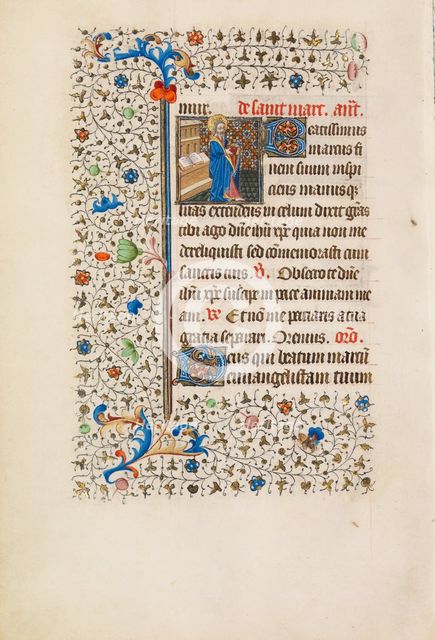 mur. de saint marc. ant.
Beatissimus
marcus fi
nem suum inspi
ciens manus q;
suas extendens in celum dixit gras
tibi ago due ihu xpe quia non me
dereliquisti sed comemorasti cum
sanctis tuis. V. Obsecro te due
ihu xpe suscipe in pace animam me
am. R. Et no me paciaris a tua
gratia separari. Oremus. oro.
Deus qui beatum marcu
euuangelistam tuum